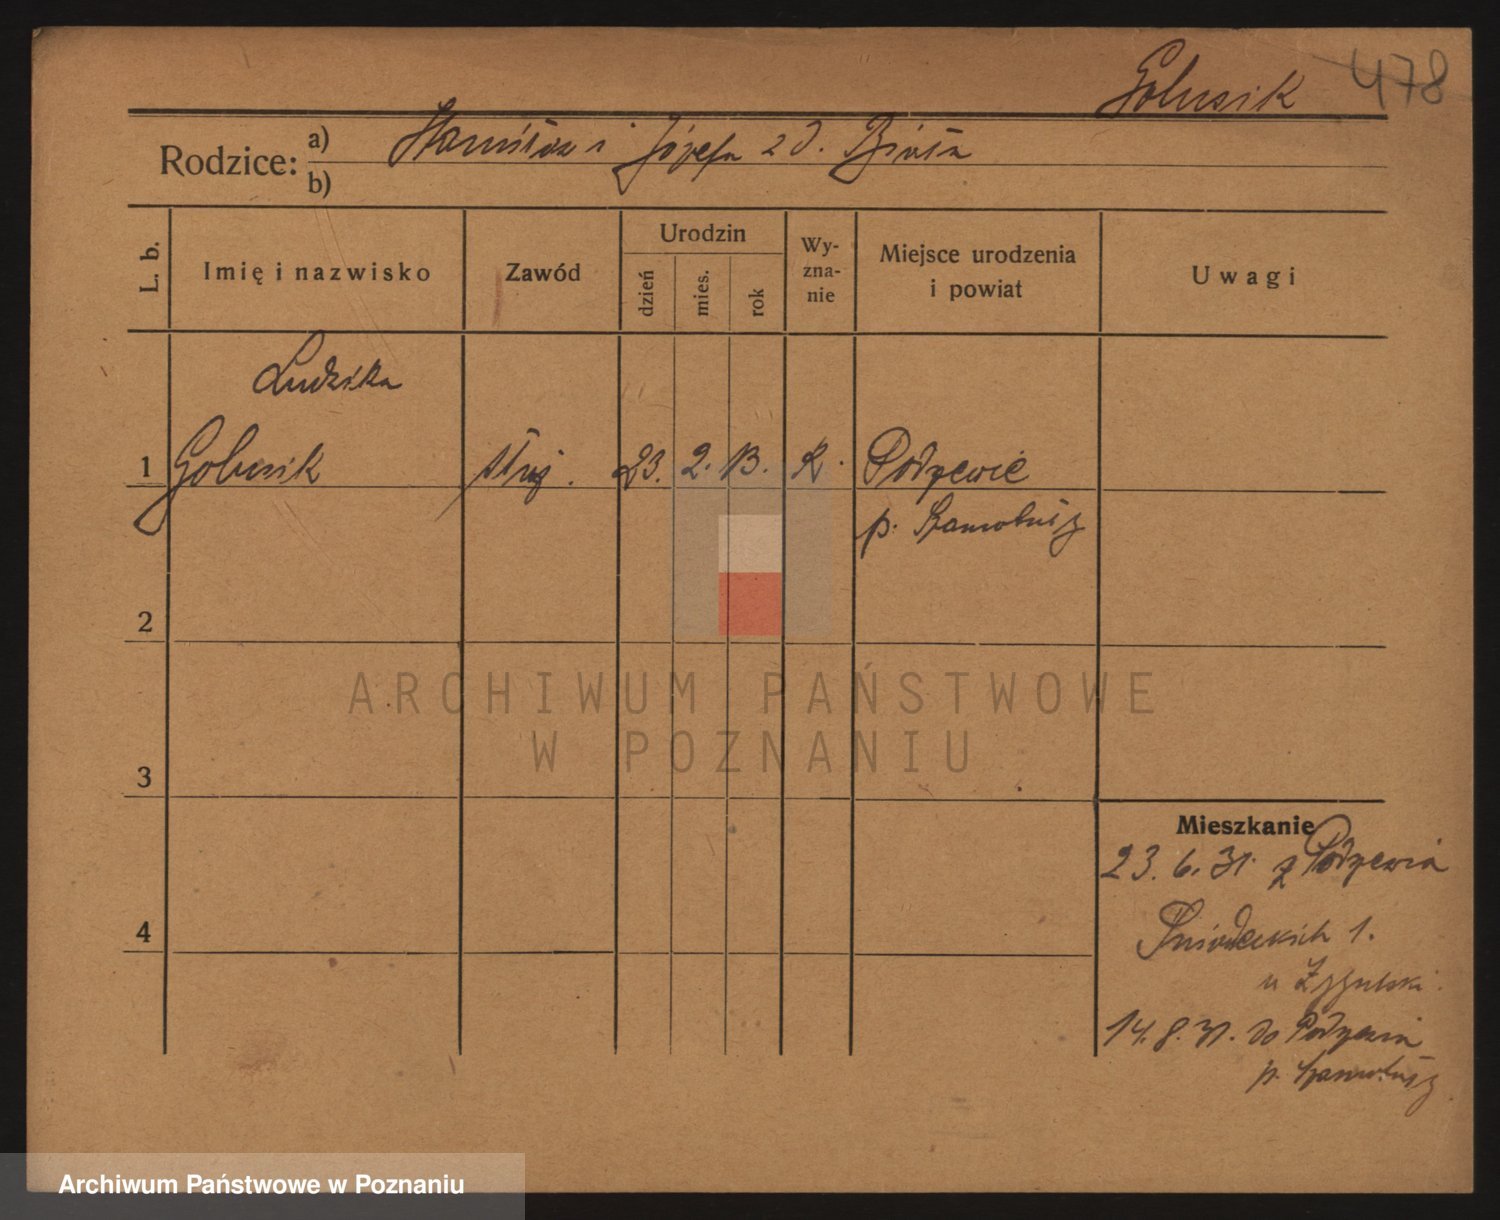 Golusik 478
Rodzice: a) Stanisław i Józefa z d. Biała
b)
L. b.
Imię i nazwisko
Zawód
Urodzin
dzień
mies.
rok
Wy-
zna-
nie
Miejsce urodzenia
i powiat
Uwagi
Ludwika
1 Golusik służ. 23. 2. 13. R.
p. Szamotuły
2
3
4
ARCHIWUM PAŃSTWOWE
W POZNANIU
Mieszkanie
23. 6. 31. z
Śniadeckich 1.
u Zygulski.
14. 8. 31. do
p. Szamotuły
Archiwum Państwowe w Poznaniu